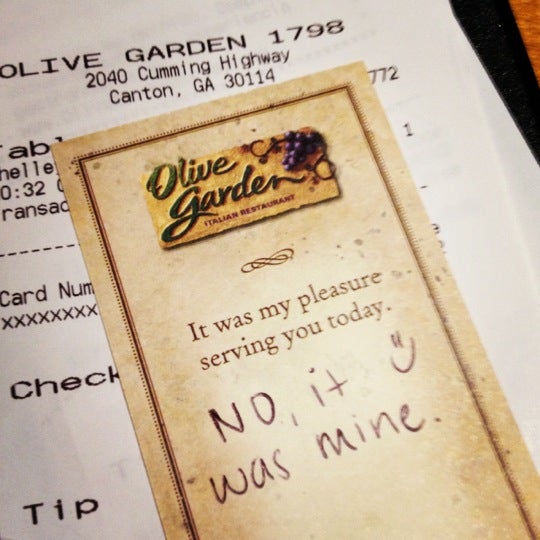 OLIVE GARDEN 1798
2040 Cumming Highway
Canton, GA 30114
772
1
0:32
Card Num
xxxxxxxx
Check
Tip
Olive
Garden
ITALIAN RESTAURANT
It was my pleasure
serving you today.
NO, it
was mine.